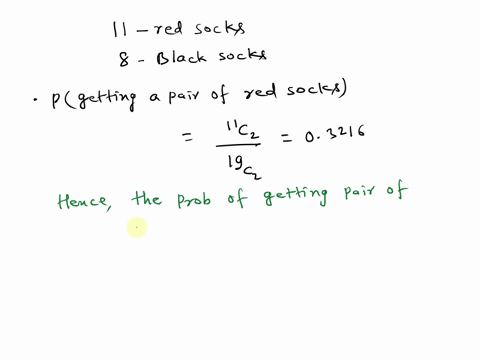 11 - red socks
8 - Black socks
. P(getting a pair of red socks)
= ¹¹C₂ / 19C₂ = 0.3216
Hence, the prob of getting pair of